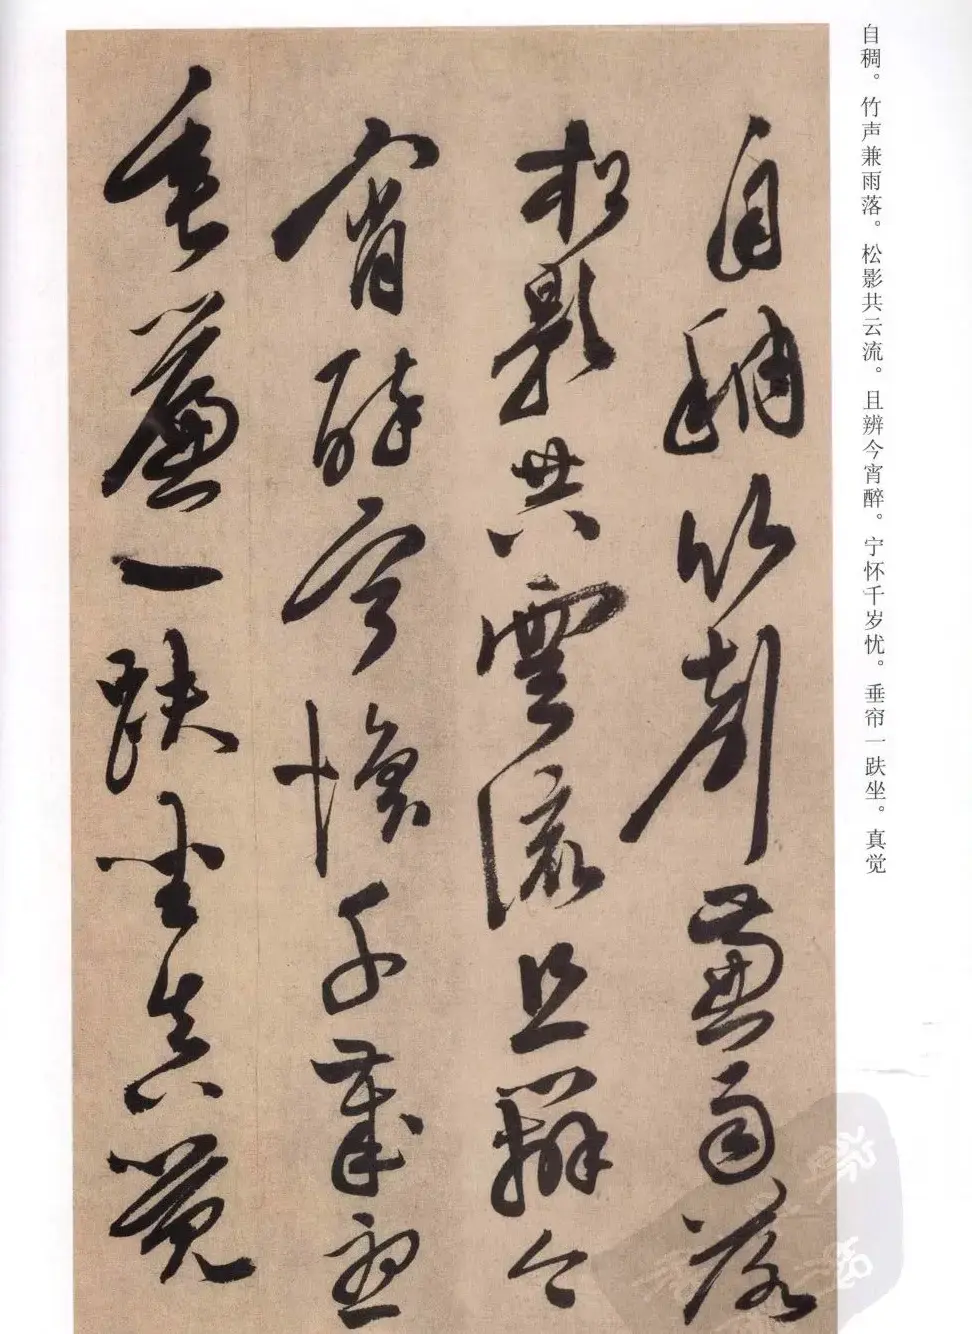 自稠。竹声兼雨落。松影共云流。且辨今宵醉。宁怀千岁忧。垂帘一趺坐。真觉
自稠竹聲兼雨落
松影共雲流且辨今
宵醉寧懷千歲憂
垂簾一趺坐真覺